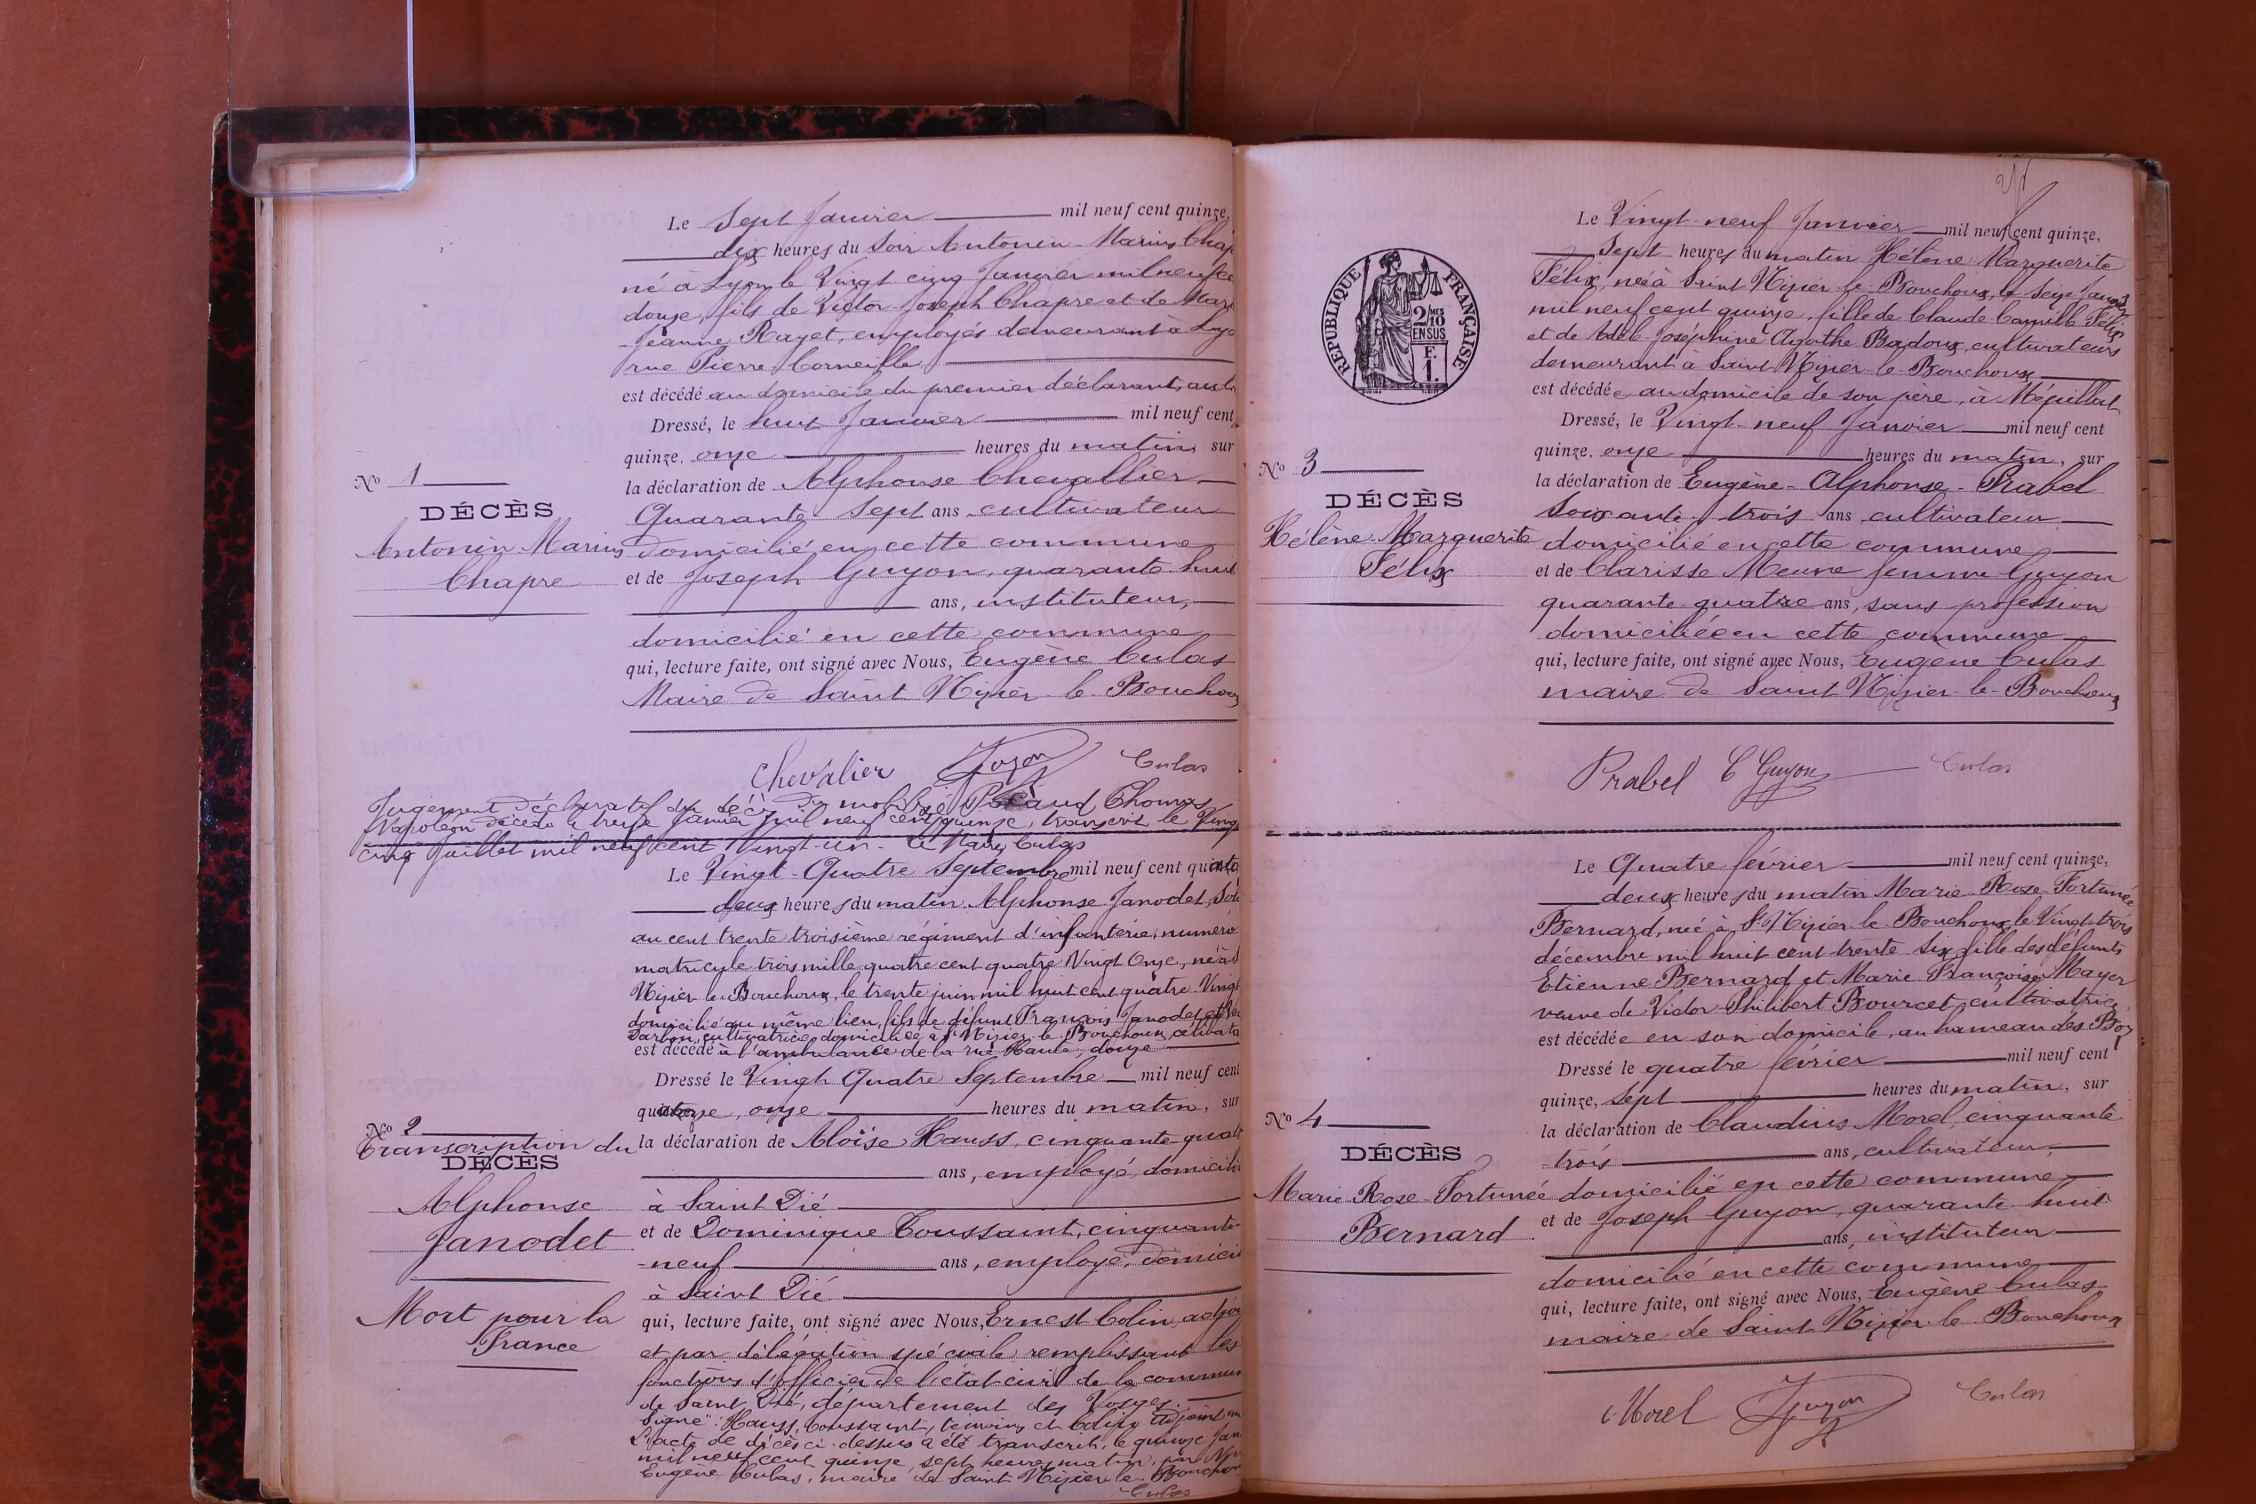 Le Sept Janvier mil neuf cent quinze,
dix heures du soir Antonin Marius Chap
né à Lyon le Vingt cinq Janvier mil neuf ce
douze, fils de Victor Joseph Chapre et de Mari
Jeanne Rayet, employés demeurant à Lyo
rue Pierre Corneille
est décédé au domicile du premier déclarant, au
Dressé, le huit Janvier mil neuf cent
quinze, onze heures du matin, sur
No 1
la déclaration de Alphonse Chevallier
DÉCÈS
Quarante Sept ans cultivateur
Antonin Marius
domicilié en cette commune
Chapre
et de Joseph Guyon, quarante huit
ans, instituteur,
domicilié en cette commune
qui, lecture faite, ont signé avec Nous, Eugène Culas
Maire de Saint Nizier le Bouchoux
Chevalier Guyon Culas
Jugement Déclaratif du décès du mobilisé Thomas
Napoléon décédé le treize Janvier mil neuf cent quinze, transcrit le Vingt
cinq Juillet mil neuf cent Vingt-un - Le Maire Culas
Le Vingt-Quatre Septembre mil neuf cent quato
deux heures du matin Alphonse Janodet, Sol
au cent trente troisième régiment d'infanterie, numéro
matricule trois mille quatre cent quatre Vingt Onze, né à S
Nizier le Bouchoux, le trente juin mil huit cent quatre Vingt
domicilié au même lieu, fils de défunt François Janodet et de
Darbon, cultivatrice domiciliée à St Nizier le Bouchoux, céliba
est décédé à l'ambulance de la rue Haute, douze
Dressé le Vingt Quatre Septembre mil neuf cent
quatorze, onze heures du matin, sur
No 2
Transcription du
DÉCÈS
la déclaration de Aloïse Hauss, cinquante-quat
ans, employé, domicili
Alphonse
à Saint Dié
Janodet
et de Dominique Toussaint, cinquante
-neuf ans, employé, domici
à Saint Dié
Mort pour la
France
qui, lecture faite, ont signé avec Nous, Ernest Colin adjoi
et par délégation spéciale remplissant les
fonctions d'officier de l'état civil de la commun
de Saint Dié, département des Vosges.
Signé: Hauss, Toussaint, témoins et Colin Adjoint
L'acte de décès ci-dessus a été transcrit, le quinze Jan
mil neuf cent quinze, sept heures matin, par N
Eugène Culas, maire de Saint Nizier le Bouchoux
Culas
Le Vingt-neuf Janvier mil neuf cent quinze,
Sept heures du matin Hélène Marguerite
Félix, née à Saint Nizier le Bouchoux, le Seize Janvier
mil neuf cent quinze, fille de Claude Camille Félix
et de Adèle Joséphine Agathe Badoux, cultivateurs
demeurant à Saint Nizier le Bouchoux
RÉPUBLIQUE FRANÇAISE
2/10 MES
EN SUS
F.
1.
est décédée au domicile de son père, à Mépillat
Dressé, le Vingt-neuf Janvier mil neuf cent
quinze, onze heures du matin, sur
No 3
la déclaration de Eugène-Alphonse-Prabel
DÉCÈS
Soixante trois ans cultivateur
Hélène Marguerite
domicilié en cette commune
Félix
et de Clarisse Meune femme Guyon
quarante quatre ans, sans profession
domiciliée en cette commune
qui, lecture faite, ont signé avec Nous, Eugène Culas
maire de Saint Nizier le Bouchoux
Prabel C Guyon Culas
Le Quatre février mil neuf cent quinze,
deux heures du matin Marie Rose Fortunée
Bernard, née à St Nizier le Bouchoux le Vingt-trois
décembre mil huit cent trente six fille des défunts
Etienne Bernard et Marie Françoise Mayer
veuve de Victor Philibert Bourcet, cultivatrice
est décédée en son domicile, au hameau des
Dressé le quatre février mil neuf cent
quinze, sept heures du matin, sur
No 4
la déclaration de Claudius Morel, cinquante
DÉCÈS
-trois ans, cultivateur,
Marie Rose Fortunée
domicilié en cette commune
Bernard
et de Joseph Guyon, quarante huit
ans, instituteur
domicilié en cette commune
qui, lecture faite, ont signé avec Nous, Eugène Culas
maire de Saint Nizier le Bouchoux
C. Morel Guyon Culas